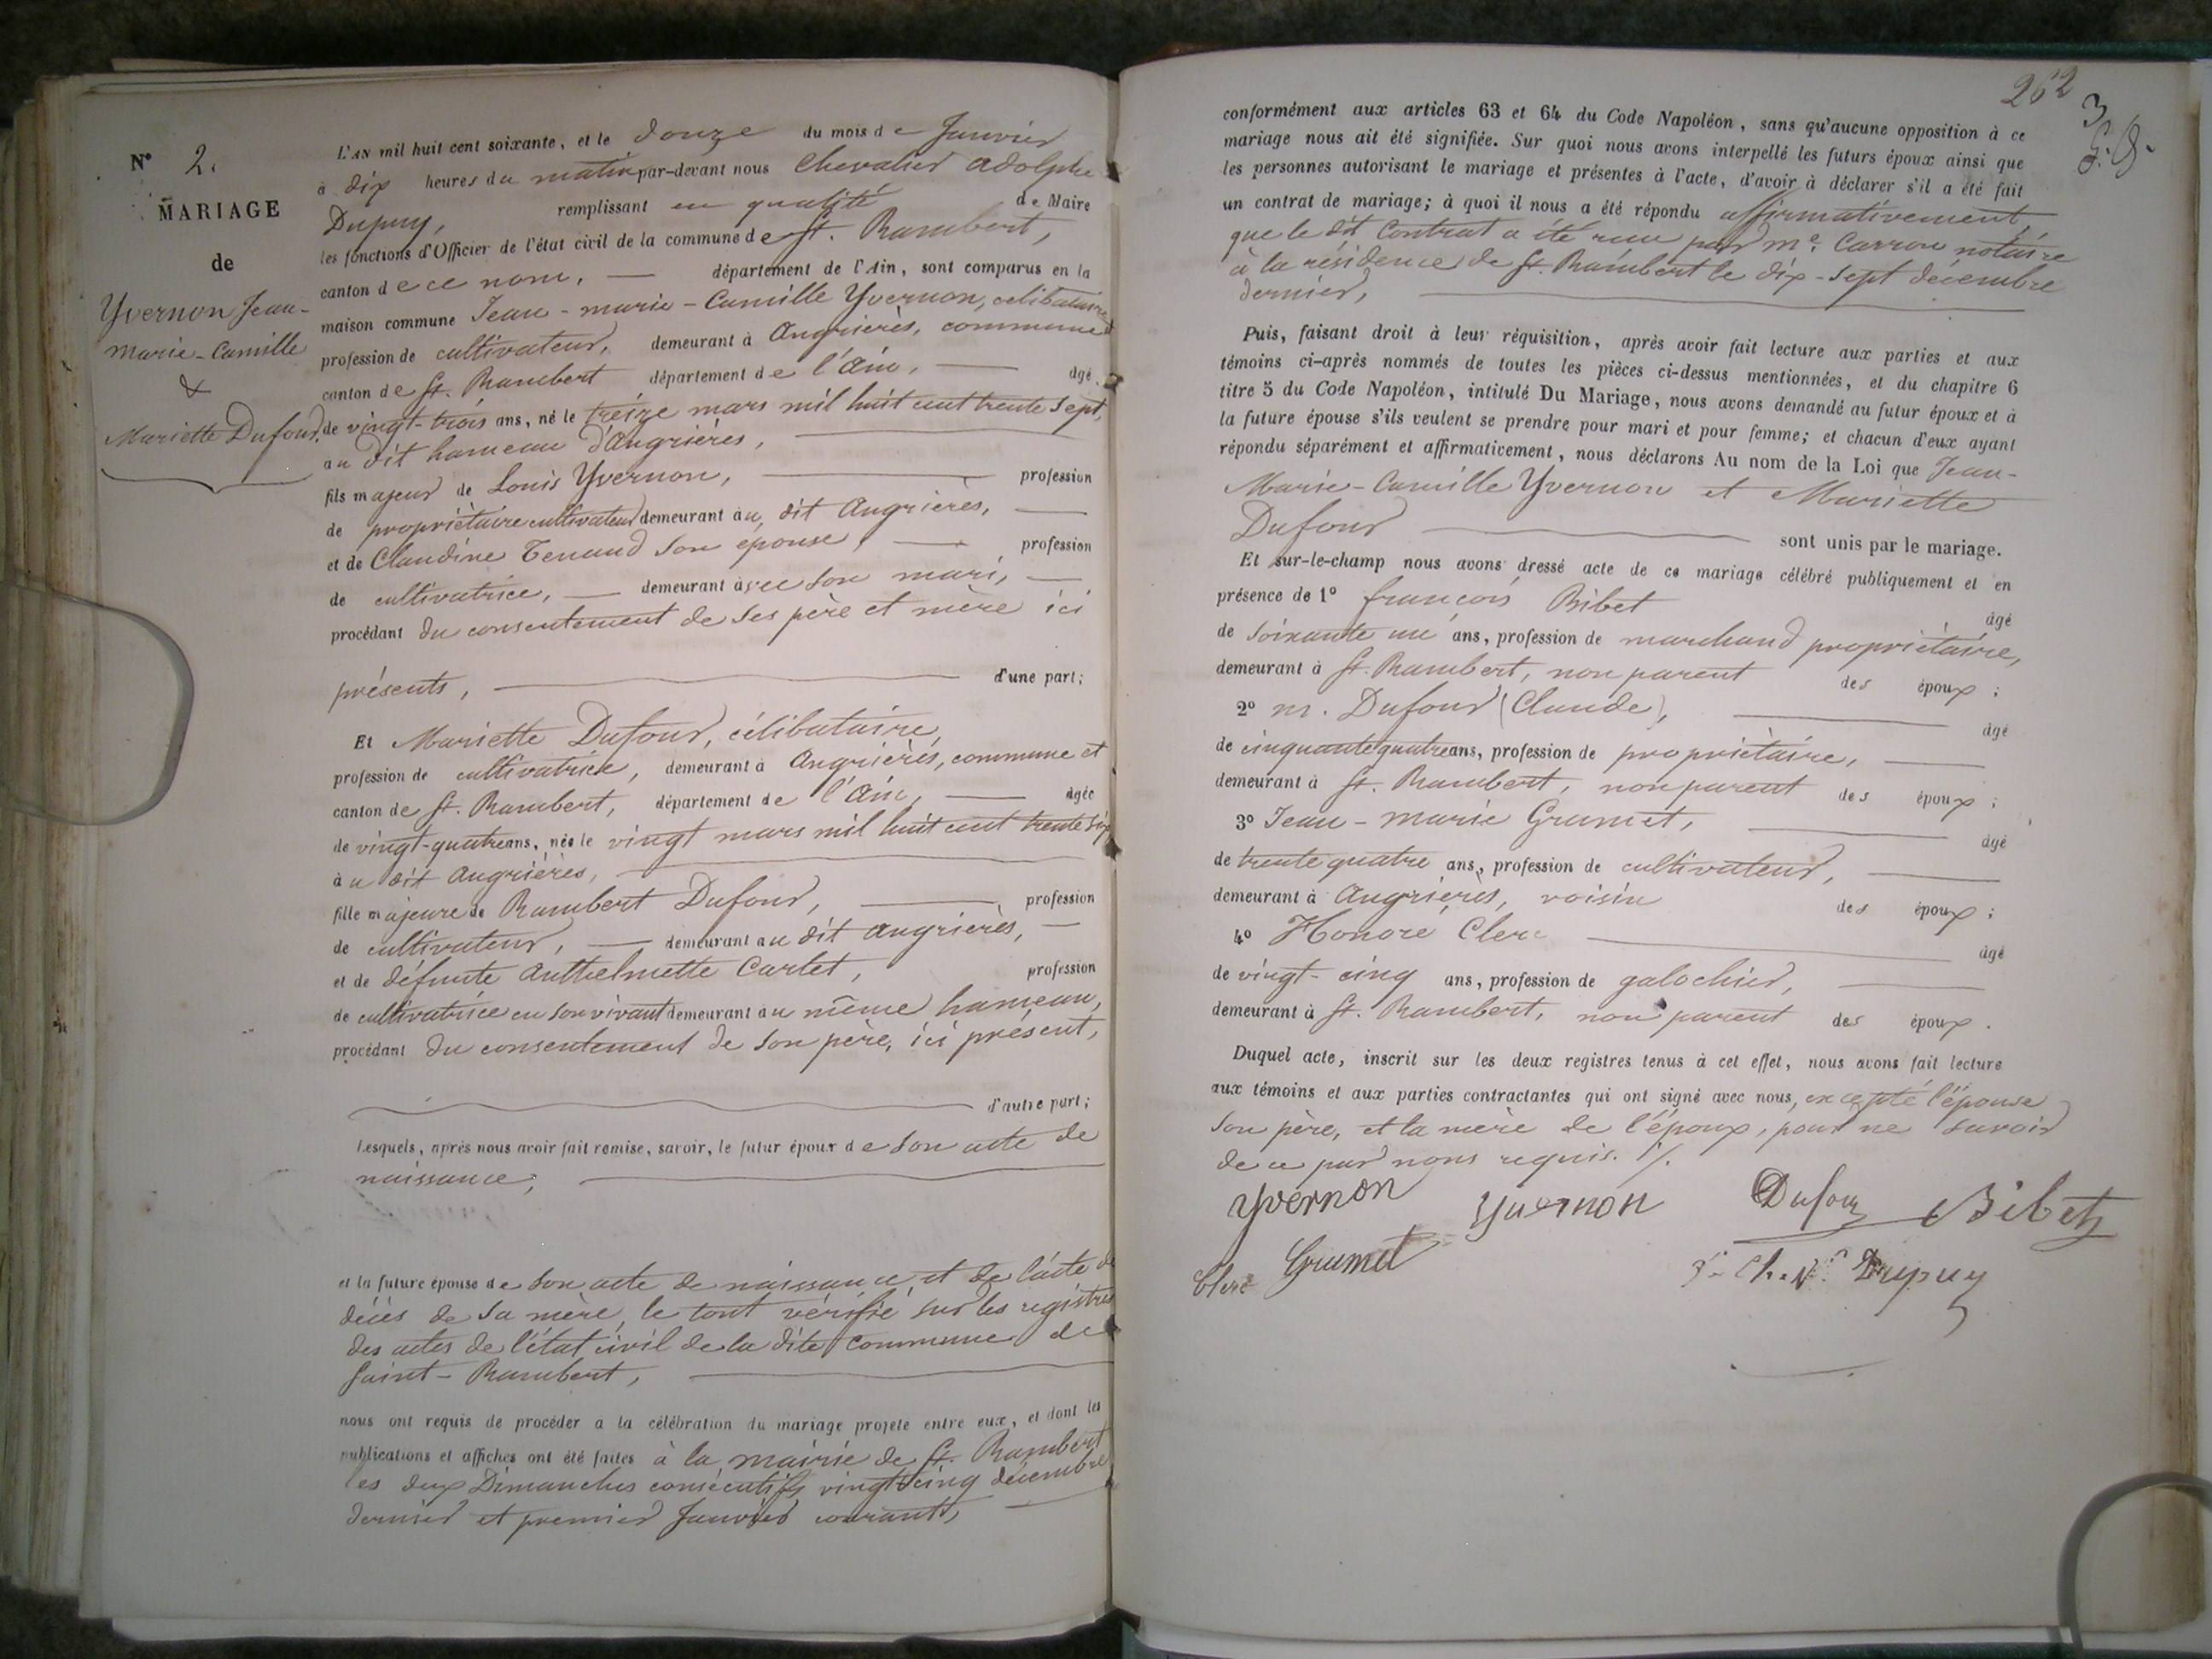 N° 2.
MARIAGE
de
Yvernon Jean-
marie-Camille
&
Mariette Dufour.
L'AN mil huit cent soixante, et le douze du mois de Janvier
à dix heures du matin par-devant nous Chevalier Adolphe
Dupuy, remplissant en qualité de Maire
les fonctions d'Officier de l'état civil de la commune de St. Rambert,
canton de ce nom, département de l'Ain, sont comparus en la
maison commune Jean-marie-Camille Yvernon, célibataire
profession de cultivateur, demeurant à Angrières, commune
canton de St. Rambert département de l'Ain, âgé
de vingt-trois ans, né le treize mars mil huit cent trente sept,
au dit hameau d'Angrières,
fils majeur de Louis Yvernon, profession
de propriètaire cultivateur demeurant au dit Angrières,
et de Claudine Tenand son épouse, profession
de cultivatrice, demeurant avec son mari,
procédant du consentement de ses père et mère ici
présents, d'une part;
Et Mariette Dufour, célibataire,
profession de cultivatrice, demeurant à Angrières, commune et
canton de St. Rambert, département de l'Ain, âgée
de vingt-quatre ans, née le vingt mars mil huit cent trente six
au dit Angrières,
fille majeure de Rambert Dufour, profession
de cultivateur, demeurant au dit Angrières,
et de défunte Anthelmette Carlet, profession
de cultivatrice en son vivant demeurant au même hameau,
procédant du consentement de son père, ici présent,
d'autre part;
Lesquels, après nous avoir fait remise, savoir, le futur époux de son acte de
naissance;
et la future épouse de son acte de naissance et de l'acte de
décès de sa mère, le tout vérifié sur les registres
des actes de l'état civil de la dite commune de
Saint-Rambert,
nous ont requis de procéder à la célébration du mariage projeté entre eux, et dont les
publications et affiches ont été faites à la mairie de St. Rambert
les deux Dimanches consécutifs vingt cinq décembre
dernier et premier Janvier courant,
262
3
conformément aux articles 63 et 64 du Code Napoléon, sans qu'aucune opposition à ce
mariage nous ait été signifiée. Sur quoi nous avons interpellé les futurs époux ainsi que
les personnes autorisant le mariage et présentes à l'acte, d'avoir à déclarer s'il a été fait
un contrat de mariage; à quoi il nous a été répondu affirmativement,
que le dit Contrat a été reçu par me. Carron notaire
à la résidence de St. Rambert le dix-sept décembre
dernier,
Puis, faisant droit à leur réquisition, après avoir fait lecture aux parties et aux
témoins ci-après nommés de toutes les pièces ci-dessus mentionnées, et du chapitre 6
titre 5 du Code Napoléon, intitulé Du Mariage, nous avons demandé au futur époux et à
la future épouse s'ils veulent se prendre pour mari et pour femme; et chacun d'eux ayant
répondu séparément et affirmativement, nous déclarons Au nom de la Loi que Jean-
Marie-Camille Yvernon et Mariette
Dufour sont unis par le mariage.
Et sur-le-champ nous avons dressé acte de ce mariage célébré publiquement et en
présence de 1° françois Bibet âgé
de soixante un ans, profession de marchand propriètaire,
demeurant à St. Rambert, non parent des époux;
2° m. Dufour (Claude), âgé
de cinquante quatre ans, profession de propriètaire,
demeurant à St. Rambert, non parent des époux;
3° Jean-marie Grumet, âgé
de trente quatre ans, profession de cultivateur,
demeurant à Angrières, voisin des époux;
4° Honoré Clerc âgé
de vingt-cinq ans, profession de galochier,
demeurant à St. Rambert, non parent des époux.
Duquel acte, inscrit sur les deux registres tenus à cet effet, nous avons fait lecture
aux témoins et aux parties contractantes qui ont signé avec nous, excepté l'épouse
son père, et la mère de l'époux, pour ne savoir
de ce par nous requis. /.
yvernon yvernon Dufour Bibet
Clerc Grumet Ch.er Dupuy